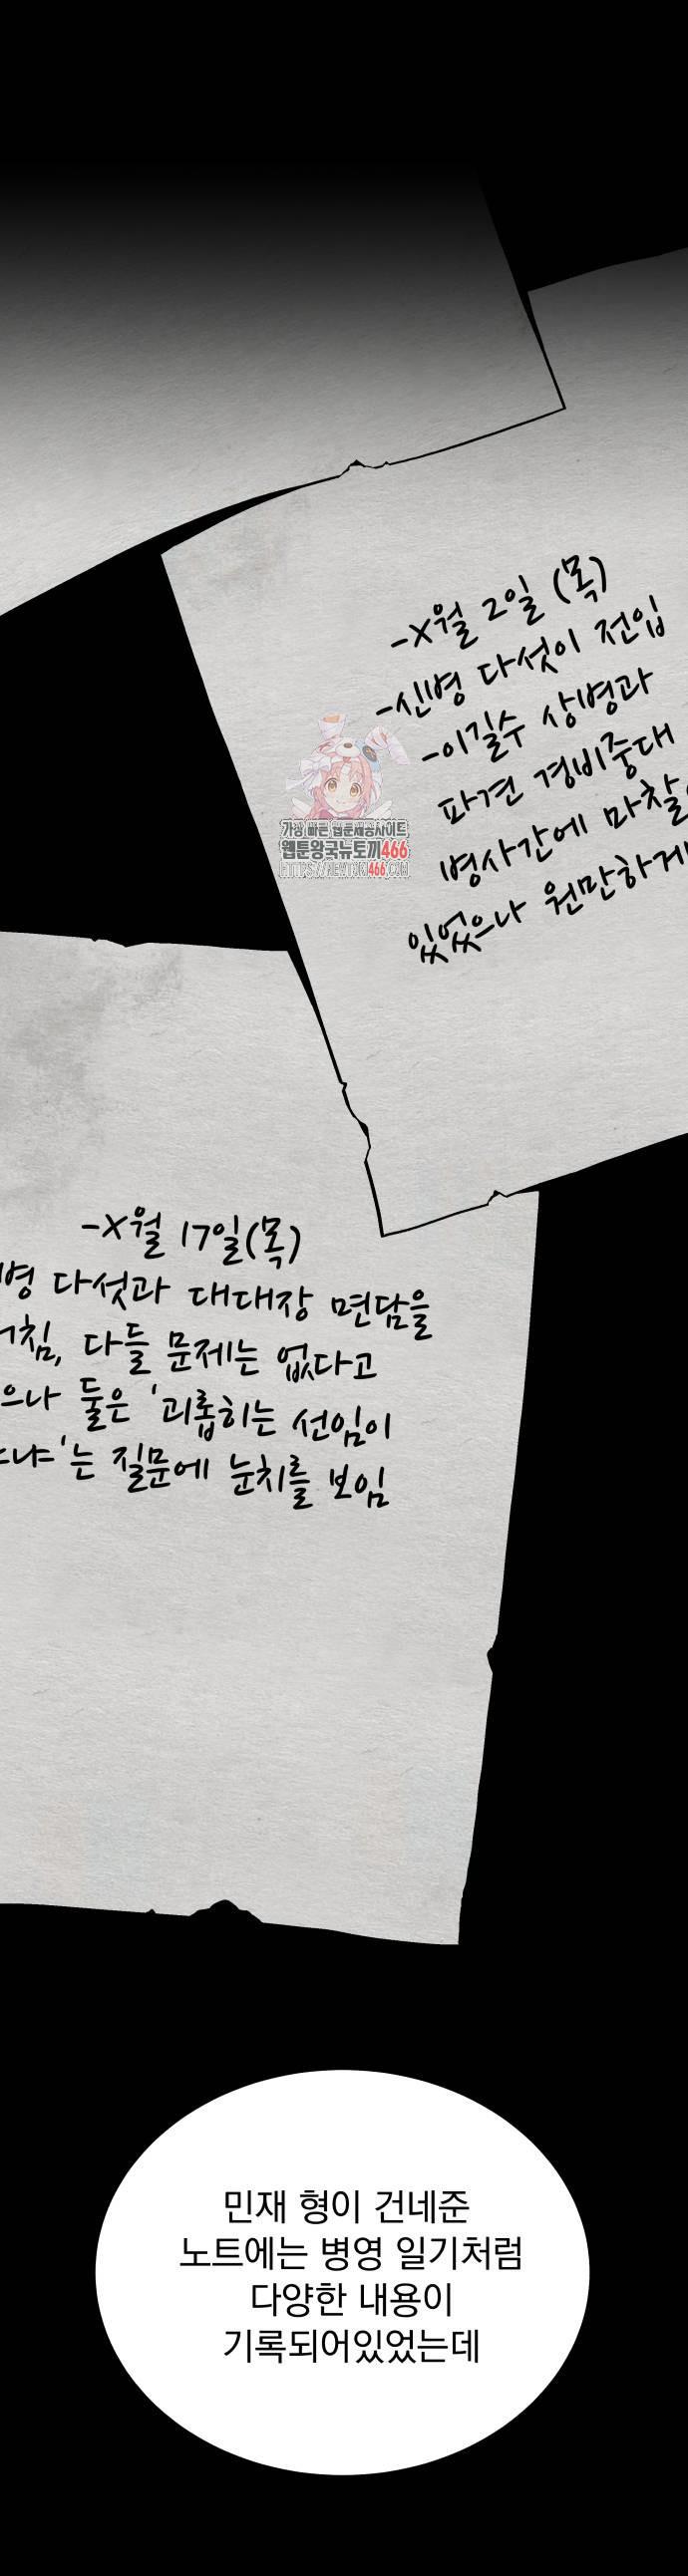 -X월 2일 (목)
-신병 다섯이 전입
-이길수 상병과
파견 경비중대
병사간에 마찰
있었으나 원만하게
가장 빠른 웹툰제공사이트
웹툰왕국뉴토끼466
HTTPS://NEWTOKI466.COM
-X월 17일(목)
병 다섯과 대대장 면담을
거침, 다들 문제는 없다고
으나 둘은 '괴롭히는 선임이
냐'는 질문에 눈치를 보임
민재 형이 건네준
노트에는 병영 일기처럼
다양한 내용이
기록되어있었는데